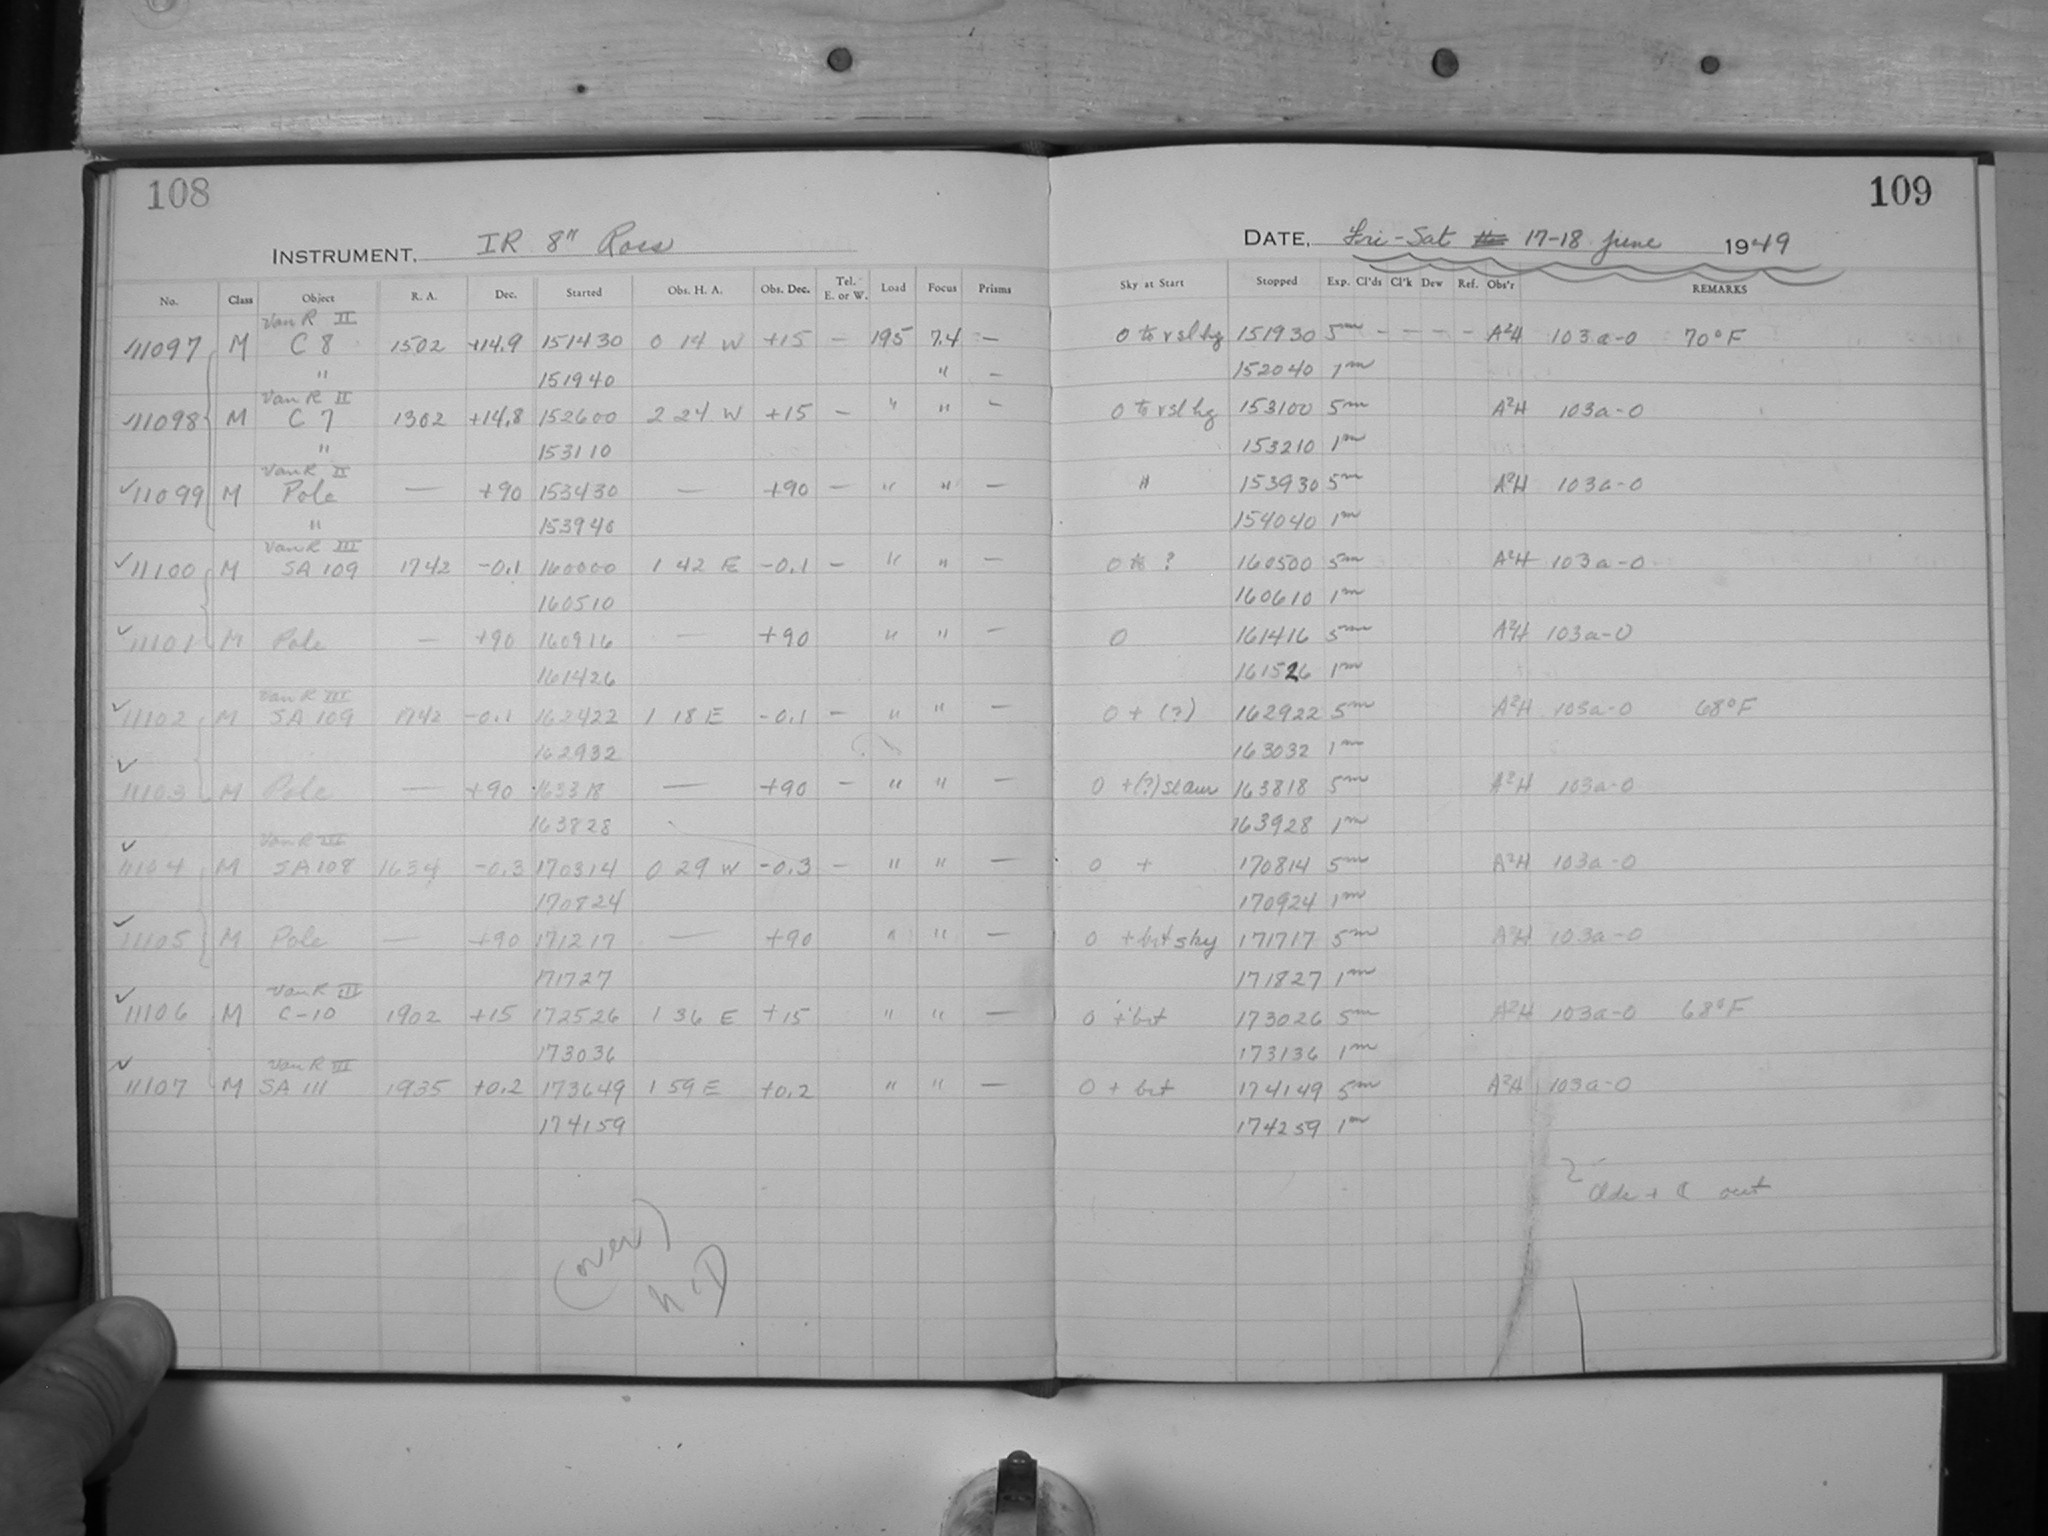 108
INSTRUMENT, IR 8" Ross
No. Class Object R. A. Dec. Started Obs. H. A. Obs. Dec. Tel. E. or W. Load Focus Prisms
Van R II
11097 M C 8 1502 +14.9 151430 0 14 W +15 — 195 7.4 —
" 151940 " —
Van R II
11098 M C 7 1302 +14.8 152600 2 24 W +15 — " " —
" 153110
Van R II
✓11099 M Pole — +90 153430 — +90 — " " —
" 153940
Van R III
✓11100 M SA 109 1742 -0.1 160000 1 42 E -0.1 — " " —
160510
✓11101 M Pole — +90 160916 — +90 " " —
161426
Van R III
✓11102 M SA 109 1742 -0.1 162422 1 18 E -0.1 — " " —
162932
✓11103 M Pole — +90 163318 — +90 — " " —
163828
Van R III
✓11104 M SA 108 1634 -0.3 170314 0 29 W -0.3 — " " —
170824
✓11105 M Pole — +90 171217 — +90 " " —
171727
Van R III
✓11106 M C-10 1902 +15 172526 1 36 E +15 " " —
173036
Van R III
✓11107 M SA 111 1935 +0.2 173649 1 59 E +0.2 " " —
174159
(over)
109
DATE, Fri-Sat 17-18 June 1949
Sky at Start Stopped Exp. Cl'ds Cl'k Dew Ref. Obs'r REMARKS
0 to v sl hg 151930 5m - - - - A²H 103a-0 70°F
152040 1m
0 to v sl hg 153100 5m A²H 103a-0
153210 1m
" 153930 5m A²H 103a-0
154040 1m
0 to ? 160500 5m A²H 103a-0
160610 1m
0 161416 5m A²H 103a-0
161526 1m
0 + (?) 162922 5m A²H 103a-0 68°F
163032 1m
0 +(?) 163818 5m A²H 103a-0
163928 1m
0 + 170814 5m A²H 103a-0
170924 1m
0 + brt sky 171717 5m A²H 103a-0
171827 1m
0 + brt 173026 5m A²H 103a-0 68°F
173136 1m
0 + brt 174149 5m A²H 103a-0
174259 1m
Clds + ☾ out